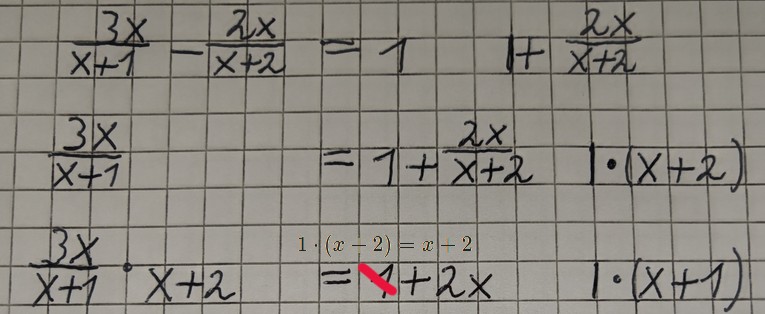 3x/(x+1) − 2x/(x+2) = 1 | + 2x/(x+2)
3x/(x+1) = 1 + 2x/(x+2) | · (x+2)
1 · (x − 2) = x + 2
3x/(x+1) · x+2 = 1 + 2x | · (x+1)